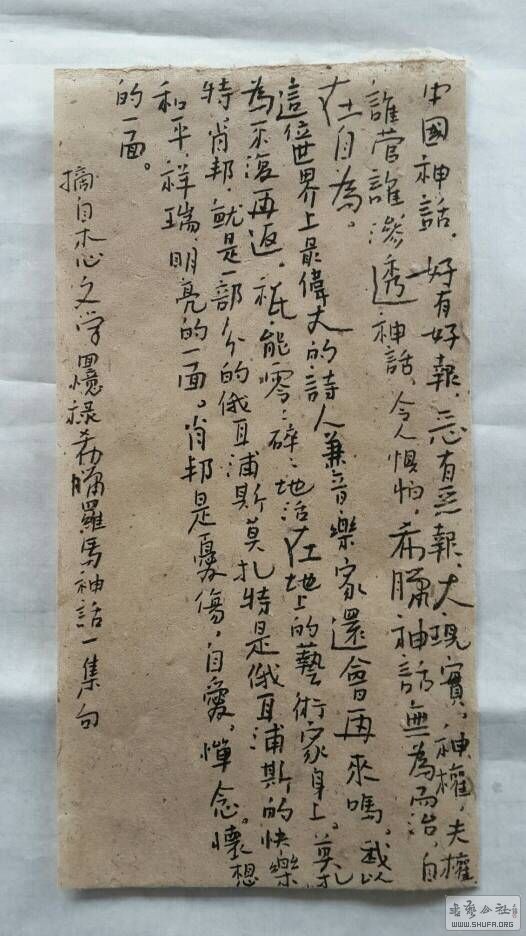 中國神話，好有好報，惡有惡報，太現實。神權，夫權
誰管誰滲透神話，令人惧怕，希臘神話無為而治，自
在自為。
這位世界上最偉大的詩人兼音樂家還會再來嗎。我以
為不復再返，祇能零零碎碎地活在地上的藝術家身上。莫扎
特，肖邦，就是一部分的俄耳浦斯莫扎特是俄耳浦斯的快樂
和平，祥瑞，明亮的一面。肖邦是憂傷，自愛，懷念。懷想
的一面。
摘自木心文学回憶録希臘羅馬神話一集句
WWW.SHUFA.ORG